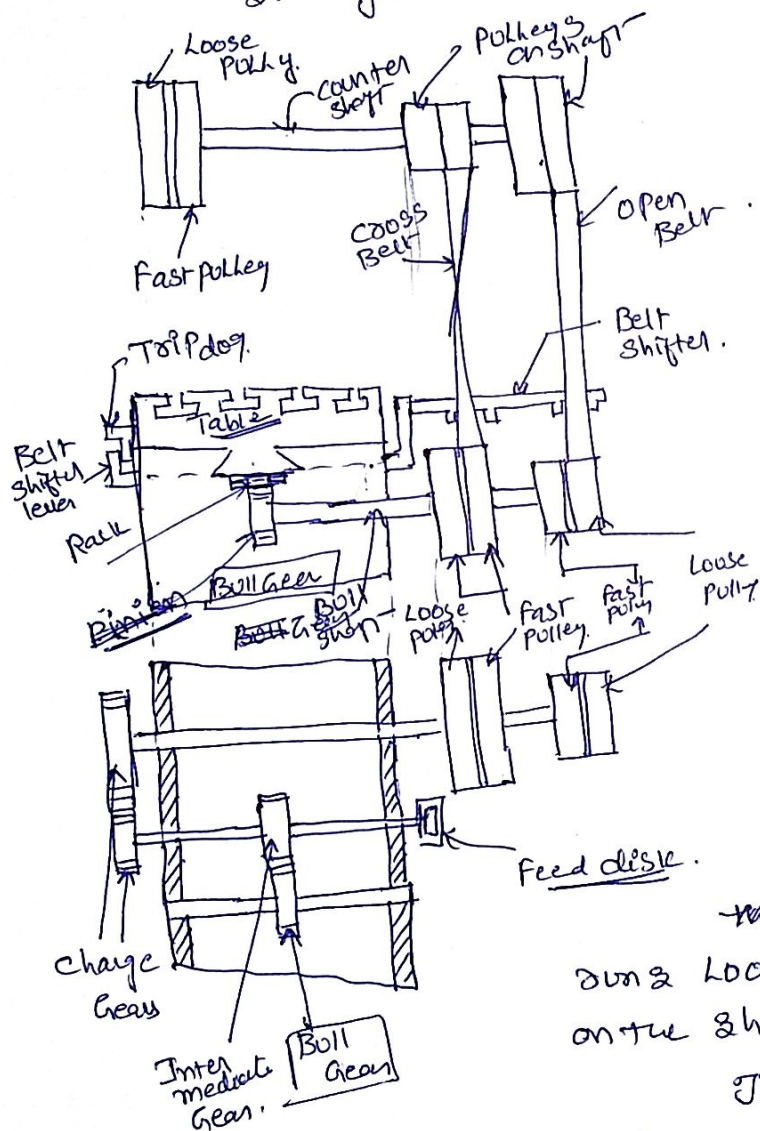 Loose
Pully.
Counter
shaft
Pulleys
on shaft
Fast pulley
Cross
Belt
Open
Belt .
Trip dog.
Belt
Shifter .
Table
Belt
shifter
lever
Rack
Bull Gear
Pinion
Bull
Loose
pulley
Fast
Pulley.
fast
pully
Loose
Pully
Feed disk .
Change
Gears
Inter
mediate
Gear.
Bull
Gear
Loo
on the sh